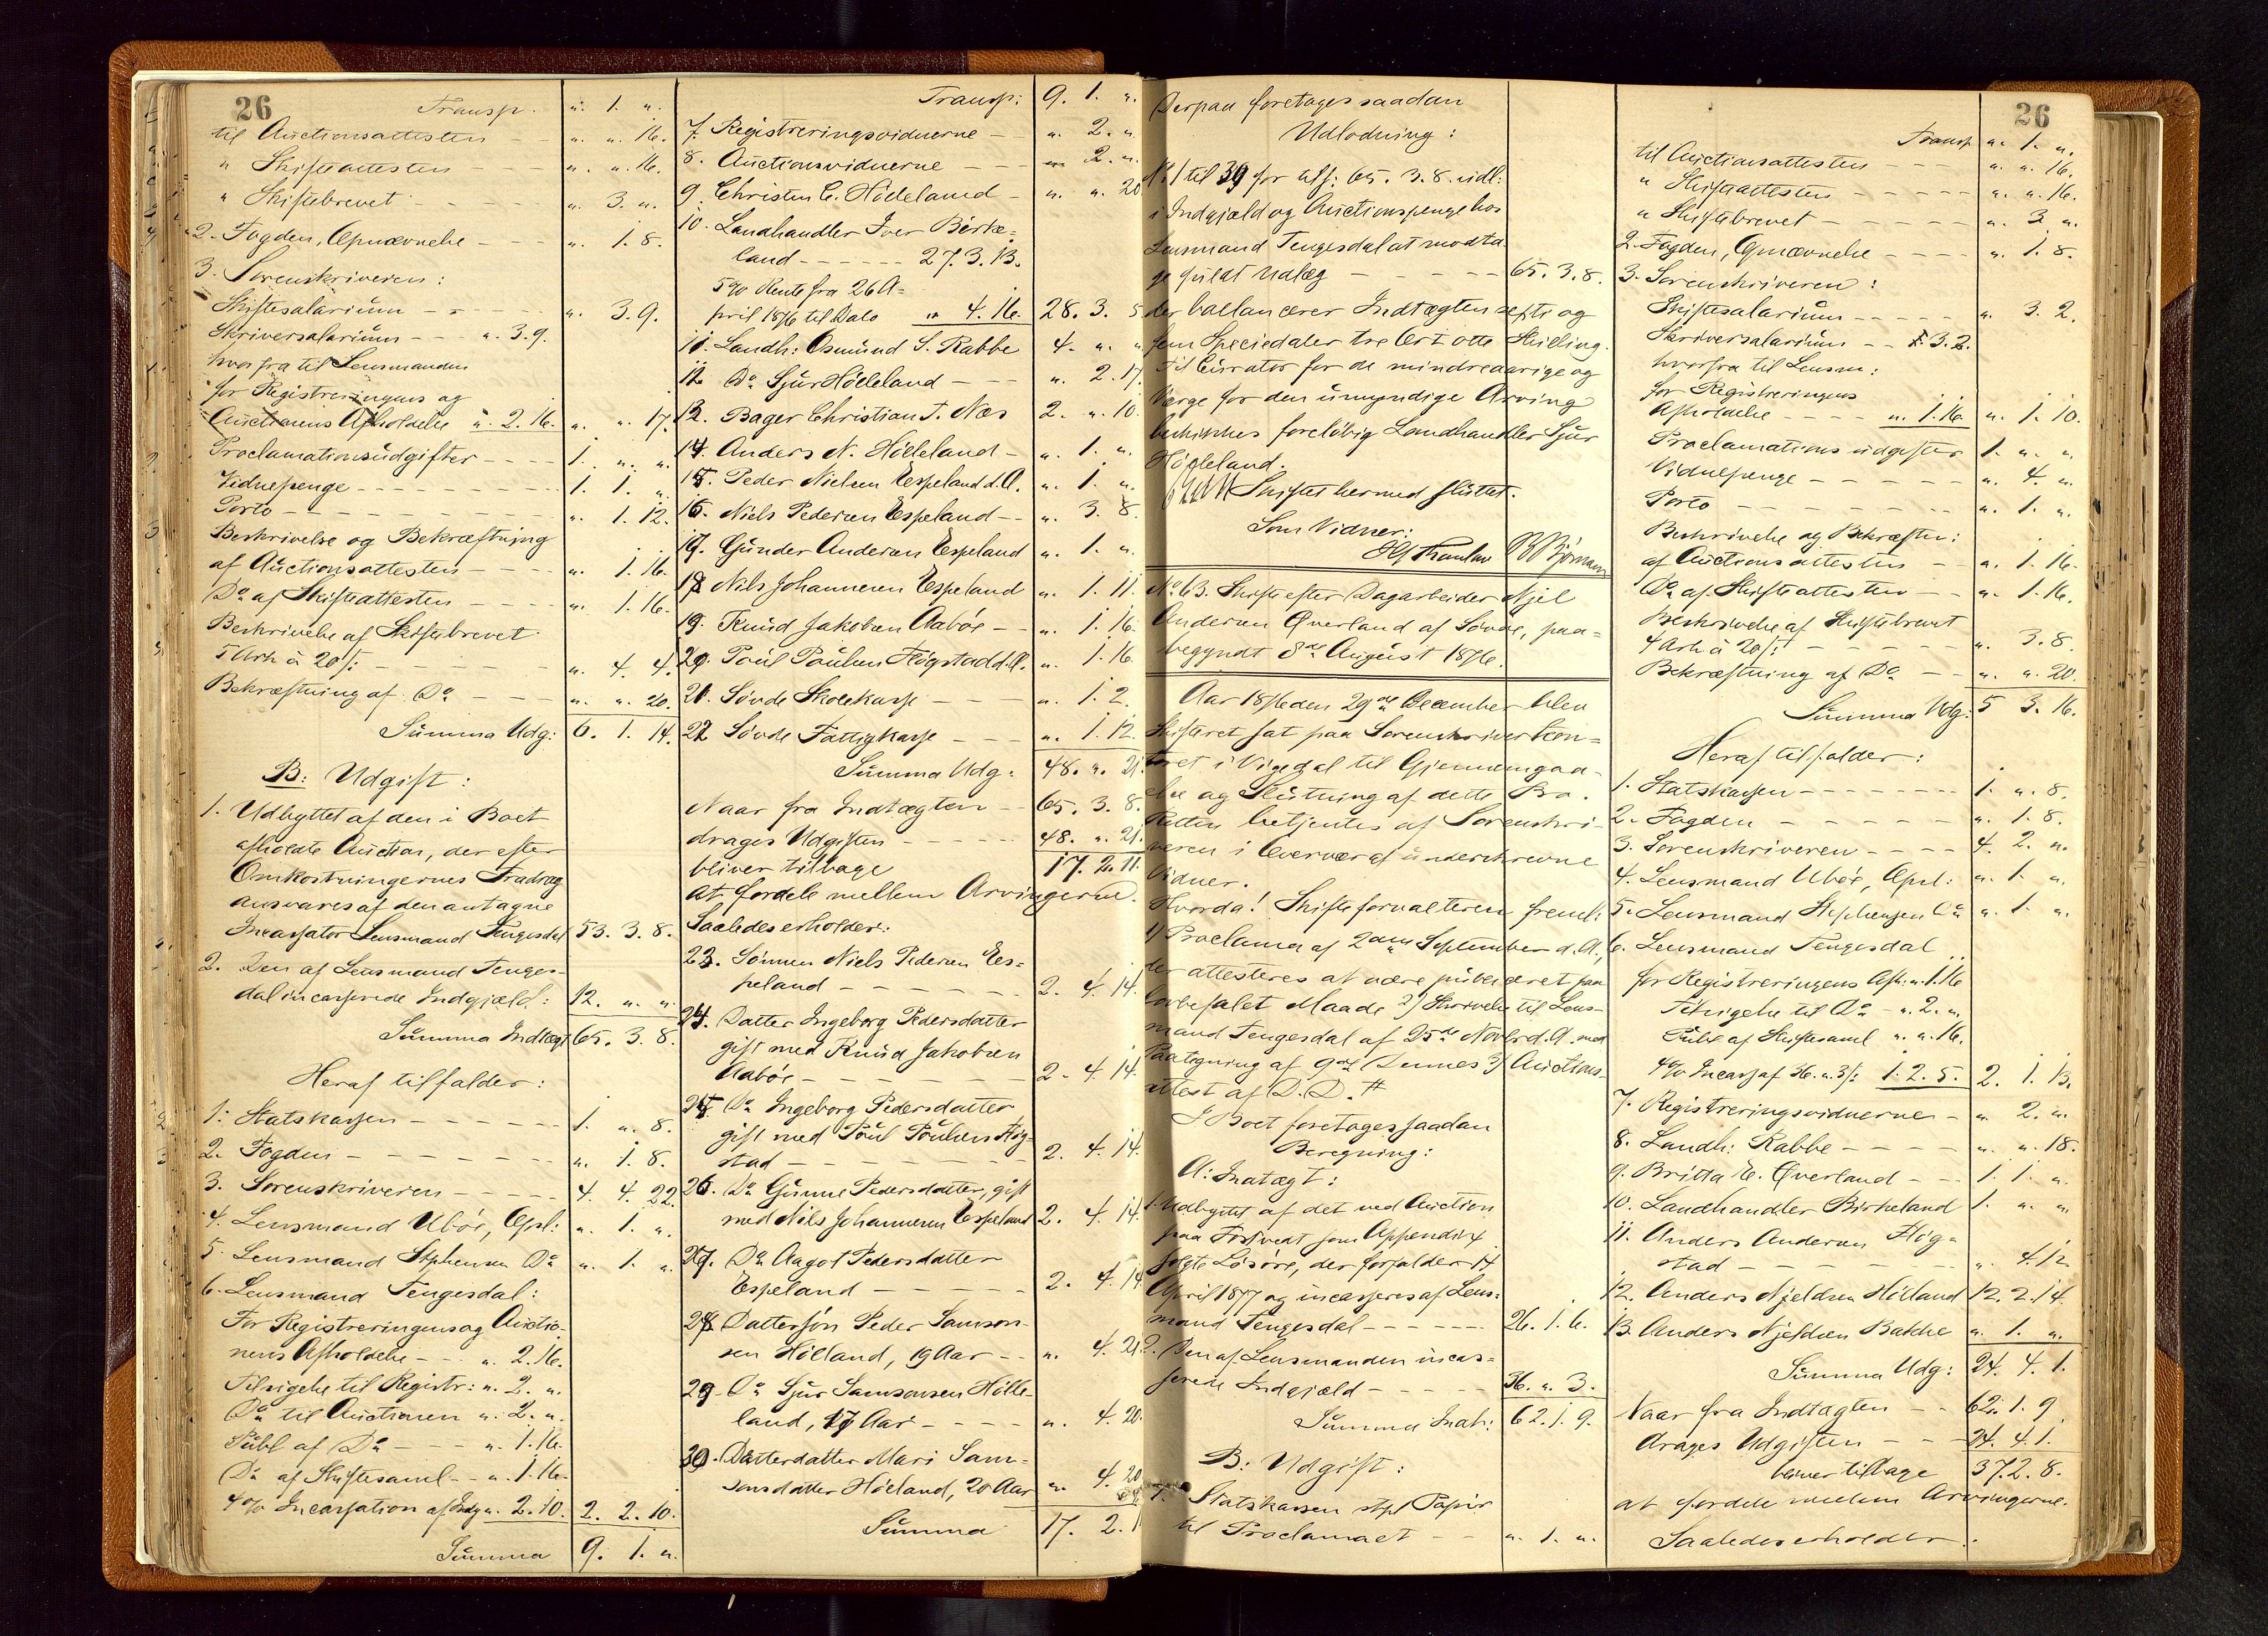 26
Transp. " 1. "
til Auctionsattesten - " " 16.
" Skifteattesten - - " " 16.
" Skiftebrevet - - - - " 3. "
2. Fogden, Opnævnelse - - - " 1. 8.
3. Sorenskriveren:
Skiftesalarium - - - - " 3. 9.
Skriversalarium - - " 3. 9.
hvorfra til Lensmanden
for Registreringens og
Auctionens Afholdelse " 2. 16. " " 17.
Proclamationsudgifter - - - 1. " "
Vidnepenge - - - - - - - 1. 1. "
Porto - - - - - - - - " 1. 12.
Beskrivelse og Bekræftning
af Auctionsattesten - - - " 1. 16.
Do af Skifteattesten - - - " 1. 16.
Beskrivelse af Skiftebrevet
5 Ark à 20 ß: - - - - - " 4. 4.
Bekræftning af Do - - - " " 20.
Summa Udg: 6. 1. 14.
B: Udgift:
1. Udbyttet af den i Boet
afholdte Auction, der efter
Omkostningernes Fradrag
ansvares af den antagne
Incassator Lensmand Tengesdal 53. 3. 8.
2. Den af Lensmand Tenges-
dal incasserede Indgjæld: 12. " "
Summa Indtægt 65. 3. 8.
Heraf tilfalder:
1. Statskassen - - - - - - 1. " 8.
2. Fogden - - - - - - - " 1. 8.
3. Sorenskriveren - - - - - 4. 4. 22.
4. Lensmand Ubøe, Opsl: " 1. "
5. Lensmand Stephensen Do " 1. "
6. Lensmand Tengesdal:
For Registreringens og Auctio-
nens Afholdelse - - " 2. 16.
Tilsigelse til Registr: " 2. "
Do til Auctionen " 2. "
Publ af Do - - - " 1. 16.
Do af Skiftesaml - - " 1. 16.
4% Incassation af Indg " 2. 10. 2. 2. 10.
Summa 9. 1. "
Transp: 9. 1. "
7. Registreringsvidnerne - " 2. "
8. Auctionsvidnerne - - - " 2. "
9. Christen C. Hölleland - " " 20
10. Landhandler Iver Birke-
land - - - - - - 27. 3. 13.
5% Rente fra 26 A-
pril 1876 til Dato " 4. 16. 28. 3. 5
11. Landh: Osmund S. Rabbe 4. " "
12. Do Sjur Hölleland - - - " 2. 17.
13. Bager Christian T. Næs 2. " 10.
14. Anders N. Hölleland - " 1. "
15. Peder Nielsen Espeland d.Æ. " 1. "
16. Niels Pedersen Espeland - - " 3. 8.
17. Gunder Andersen Espeland " 1. "
18. Nils Johannesen Espeland " 1. 11.
19. Knud Jakobsen Aabøe - - " 1. 16.
20. Poul Poulsen Høgstad d.Æ. " 1. 16.
21. Søvde Skolekasse - - " 1. 2.
22. Søvde Fattigkasse - - - " 1. 12.
Summa Udg: 48. " 21.
Naar fra Indtægten - - 65. 3. 8.
drages Udgiften - - - - - 48. " 21.
bliver tilbage 17. 2. 11.
at fordele mellem Arvingerne.
Saaledes erholder:
23. Sønnen Niels Pedersen Es-
peland - - - - - - - 2. 4. 14.
24. Datter Ingeborg Pedersdatter
gift med Knud Jakobsen
Aabøe - - - - - - - - 2. 4. 14.
25. Do Ingeborg Pedersdatter
gift med Poul Poulsen Høg-
stad - - - - - - - - - 2. 4. 14.
26. Do Gunne Pedersdatter, gift
med Nils Johannesen Espeland 2. 4. 14.
27. Do Aagot Pedersdatter
Espeland - - - - - - 2. 4. 14.
28. Dattersøn Peder Samson-
sen Hölland, 19 Aar - - " 4. 21.
29. Do Sjur Samsonsen Hölle-
land, 17 Aar - - - - - " 4. 20.
30. Datterdatter Mari Sam-
sonsdatter Hölland, 20 Aar " 4. 20
Summa 17. 2. 1
Derpaa foretages saadan
Udlodning:
N: 1 til 39 for Afsz: 65. 3. 8. udl:
i Indgjæld og Auctionspenge hos
Lensmand Tengesdal at modta-
ge fuldt Udlæg - - - - 65. 3. 8.
der ballancerer Indtægten sexti og
fem Speciedaler tre Ort otte Skilling.
Til Curator for de mindreaarige og
Værge for den umyndige Arving
beskikkes foreløbig Landhandler Sjur
Hölleland.
Skiftet hermed sluttet.
Som Vidner:
No 63. Skifte efter Dagarbeider Njel
Andersen Qverland af Søvde, paa-
begyndt 8de August 1876.
Aar 1876 den 29de December blev
Skifteret sat paa Sorenskriverkon-
toret i Vigedal til Gjennemgaa-
else og Slutning af dette Bo.
Retten betjentes af Sorenskri-
veren i Overvær af underskrevne
Vidner.
Hvorda! Skifteforvalteren freml:
1) Proclama af 2den September d.A.,
der attesteres at være publiceret paa
lovbefalet Maade 2) Skrivelse til Lens-
mand Tengesdal af 25de Novbr d.A. med
Paategning af 9de dennes 3) Auctions-
attest af D.D. #
I Boet foretages saadan
Beregning:
A: Indtægt:
1. Udbyttet af det ved Auction
paa Tosstvedt som Appendix
solgte Løsøre, der forfalder 14
April 1877 og incasseres af Lens-
mand Tengesdal - - - - - - 26. 1. 6.
2. Den af Lensmanden incas-
serede Indgjæld - - - - - 36. " 3.
Summa Indt: 62. 1. 9.
B: Udgift:
1. Statskassen stpl Papir
til Proclamaet - - " 1. "
26
Transp " 1. "
til Auctionsattesten - - - - " " 16.
" Skifteattesten - - - - - " " 16.
" Skiftebrevet - - - - - " 3 "
2. Fogden, Opnævnelse - - - - " 1. 8.
3. Sorenskriveren:
Skiftesalarium - - - - - " 3. 2.
Skriversalarium - - " 3. 2.
hvorfra til Lensm:
for Registreringens
Afholdelse - - - - " 1. 16. " 1. 10.
Proclamations udgifter 1. " "
Vidnepenge - - - - - - " 4. "
Porto - - - - - - - - " 1. "
Beskrivelse og Bekræftn:
af Auctionsattesten - - " 1. 16.
Do af Skifteattesten - - " 1. 16.
Beskrivelse af Skiftebrevet
4 Ark à 20 ß - - - - - " 3. 8.
Bekræftning af Do - - " " 20.
Summa Udg: 5 3. 16.
Heraf tilfalder:
1. Statskassen - - - - - - - 1. " 8.
2. Fogden - - - - - - - " 1. 8.
3. Sorenskriveren - - - - 4. 2. "
4. Lensmand Ubøe, Opsl: " 1. "
5. Lensmand Stephensen Do " 1. "
6. Lensmand Tengesdal
for Registreringens Afh: " 1. 16
Tilsigelse til Do - " 2. "
Publ af Skiftesaml " " 16.
4% Incass af 36. " 3 ß: 1. 2. 5. 2. 1. 13.
7. Registreringsvidnerne - " 2. "
8. Landh: Rabbe - - - - - " " 18.
9. Britta E. Qverland - - - 1. 1. "
10. Landhandler Birkeland 1. " "
11. Anders Andersen Høg-
stad - - - - - - - - - " 4. 12
12. Anders Njeldsen Hölland 12. 2. 14.
13. Anders Njeldsen Bakke " 1. "
Summa Udg: 24. 4. 1.
Naar fra Indtægten - - - 62. 1. 9
drages Udgiften - - - 24. 4. 1.
bliver tilbage 37. 2. 8.
at fordele mellem Arvingerne.
Saaledes erholder: